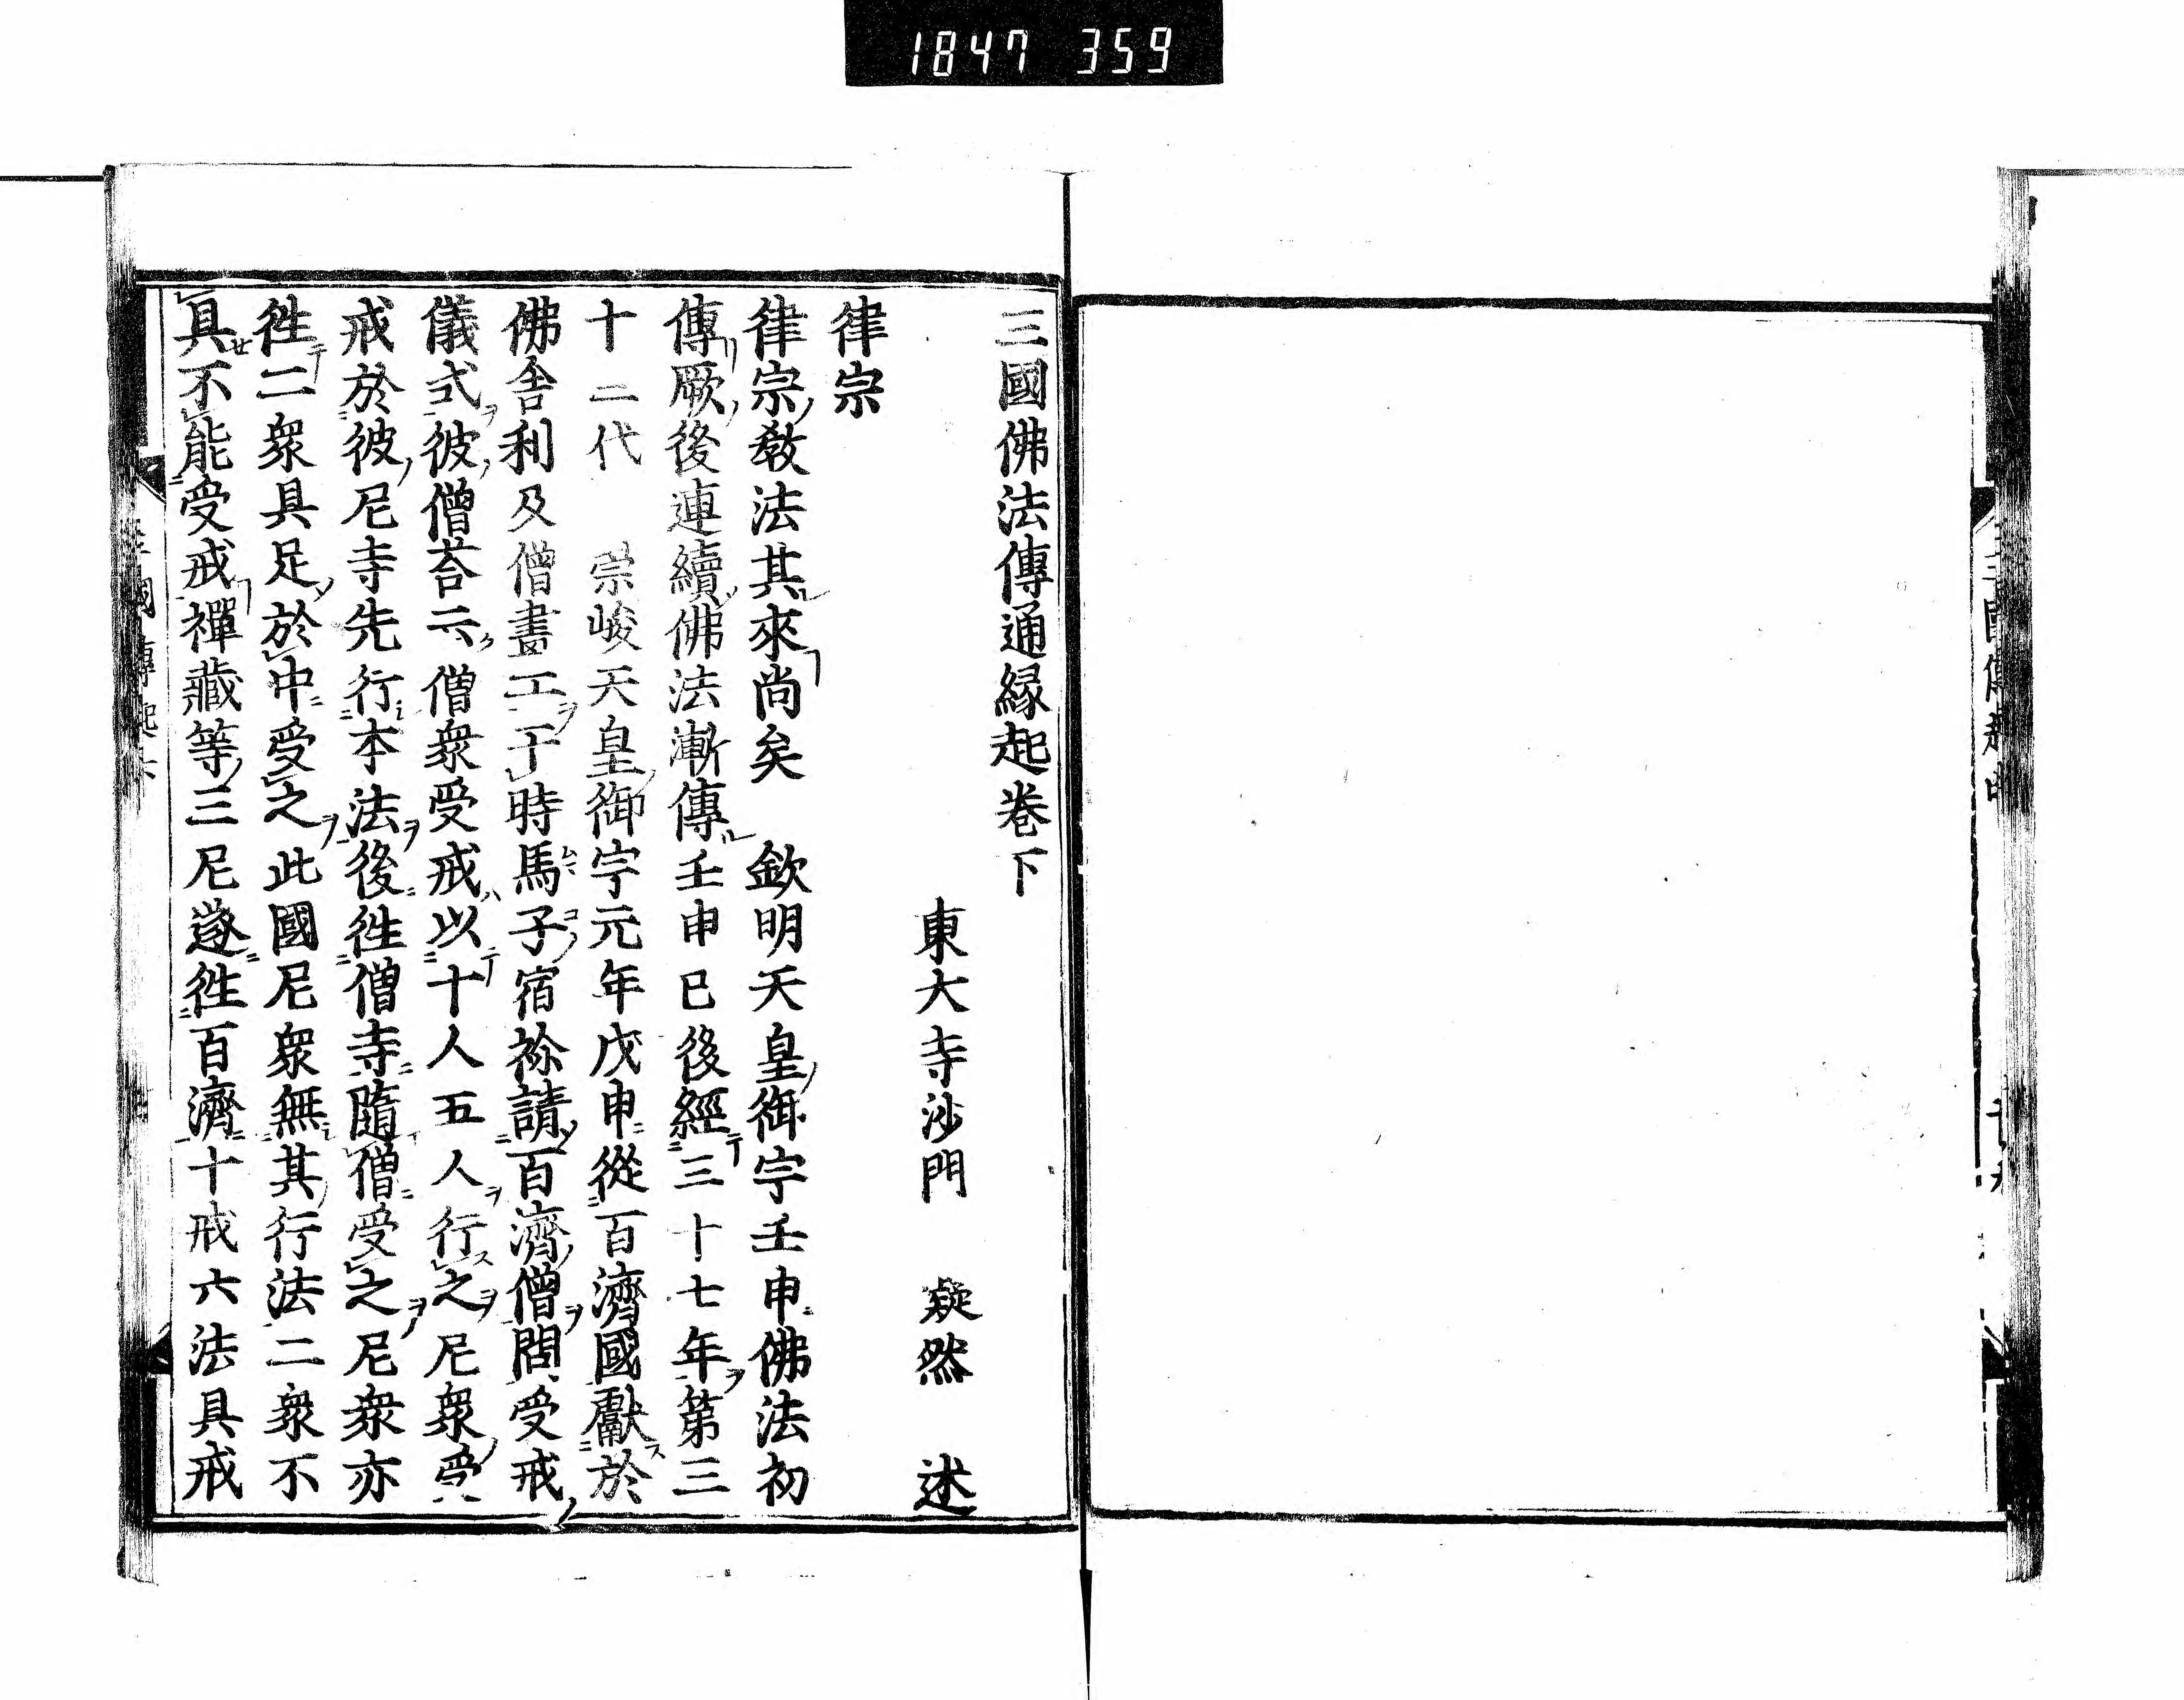 1847 359
三國佛法傳通縁起卷下
東大寺沙門 凝然 述
律宗
律宗教法其來尚矣 欽明天皇御宇壬申佛法初
傳厥後連續佛法漸傳壬申已後經三十七年第三
十二代 崇峻天皇御宇元年戊申從百濟國獻於
佛舍利及僧畫工于時馬子宿祢請百濟僧問受戒
儀式彼僧荅云僧衆受戒以十人五人行之尼衆受
戒於彼尼寺先行本法後徃僧寺隨僧受之尼衆亦
徃二衆具足於中受之此國尼衆無其行法二衆不
具不能受戒禪藏等三尼遂徃百濟十戒六法具戒